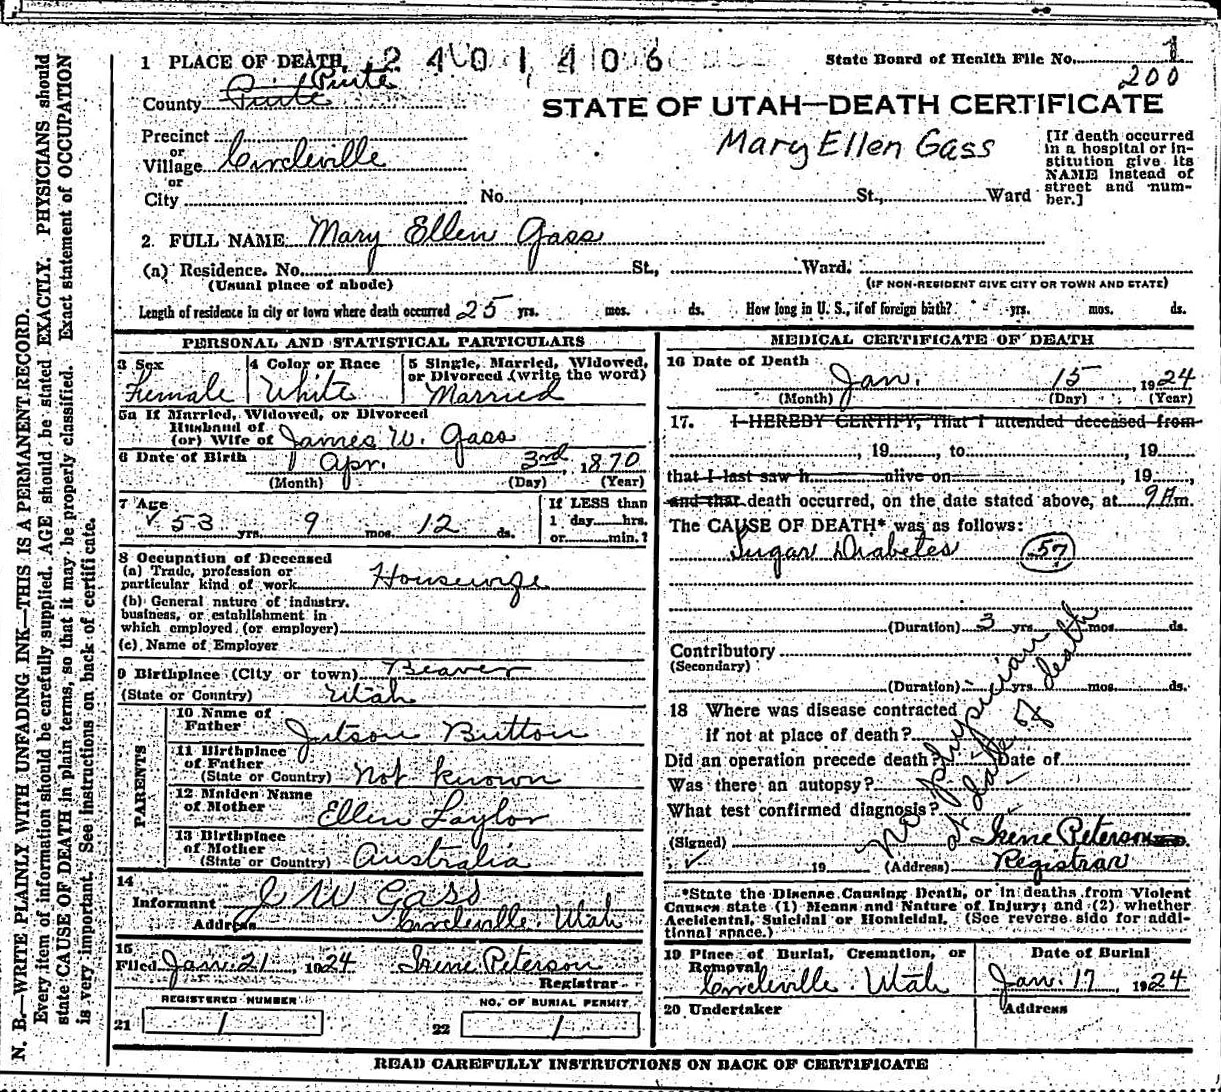 1 PLACE OF DEATH 2401406 State Board of Health File No. 1
200
County Piute Piute
STATE OF UTAH—DEATH CERTIFICATE
Mary Ellen Gass
[If death occurred in a hospital or institution give its NAME instead of street and number.]
Precinct
or
Village Circleville
or
City No. St., Ward
2. FULL NAME Mary Ellen Gass
(a) Residence. No. St., Ward.
(Usual place of abode) (IF NON-RESIDENT GIVE CITY OR TOWN AND STATE)
Length of residence in city or town where death occurred 25 yrs. mos. ds. How long in U. S., if of foreign birth? yrs. mos. ds.
PERSONAL AND STATISTICAL PARTICULARS
3 Sex
Female
4 Color or Race
White
5 Single, Married, Widowed,
or Divorced (write the word)
Married
5a If Married, Widowed, or Divorced
Husband of
(or) Wife of James W. Gass
6 Date of Birth Apr. 3rd, 1870
(Month) (Day) (Year)
7 Age
53 yrs. 9 mos. 12 ds.
If LESS than
1 day hrs.
or min.?
8 Occupation of Deceased
(a) Trade, profession or
particular kind of work Housewife
(b) General nature of industry,
business, or establishment in
which employed (or employer)
(c) Name of Employer
9 Birthplace (City or town) Beaver
(State or Country) Utah
PARENTS
10 Name of
Father Jutson Button
11 Birthplace
of Father
(State or Country) Not known
12 Maiden Name
of Mother Ellen Taylor
13 Birthplace
of Mother
(State or Country) Australia
14
Informant J W Gass
Address Circleville, Utah
15
Filed Jan. 21, 1924 Irene Peterson
Registrar
REGISTERED NUMBER
21 1
NO. OF BURIAL PERMIT
22 1
MEDICAL CERTIFICATE OF DEATH
16 Date of Death
Jan. 15, 1924
(Month) (Day) (Year)
17. I HEREBY CERTIFY, That I attended deceased from
, 19 , to , 19
that I last saw h alive on , 19 ,
and that death occurred, on the date stated above, at 9 m.
The CAUSE OF DEATH* was as follows:
Sugar Diabetes 57
(Duration) 3 yrs. mos. ds.
Contributory
(Secondary)
(Duration) yrs. mos. ds.
18 Where was disease contracted
if not at place of death?
Did an operation precede death? Date of
Was there an autopsy?
What test confirmed diagnosis?
No physician
at date of death
(Signed) Irene Peterson
19 (Address) Registrar
*State the Disease Causing Death, or in deaths from Violent
Causes state (1) Means and Nature of Injury; and (2) whether
Accidental, Suicidal or Homicidal. (See reverse side for additional space.)
19 Place of Burial, Cremation, or
Removal
Circleville. Utah
Date of Burial
Jan. 17, 1924
20 Undertaker
Address
READ CAREFULLY INSTRUCTIONS ON BACK OF CERTIFICATE
N. B.—WRITE PLAINLY WITH UNFADING INK—THIS IS A PERMANENT RECORD.
Every item of information should be carefully supplied. AGE should be stated EXACTLY. PHYSICIANS should
state CAUSE OF DEATH in plain terms, so that it may be properly classified. Exact statement of OCCUPATION
is very important. See instructions on back of certificate.